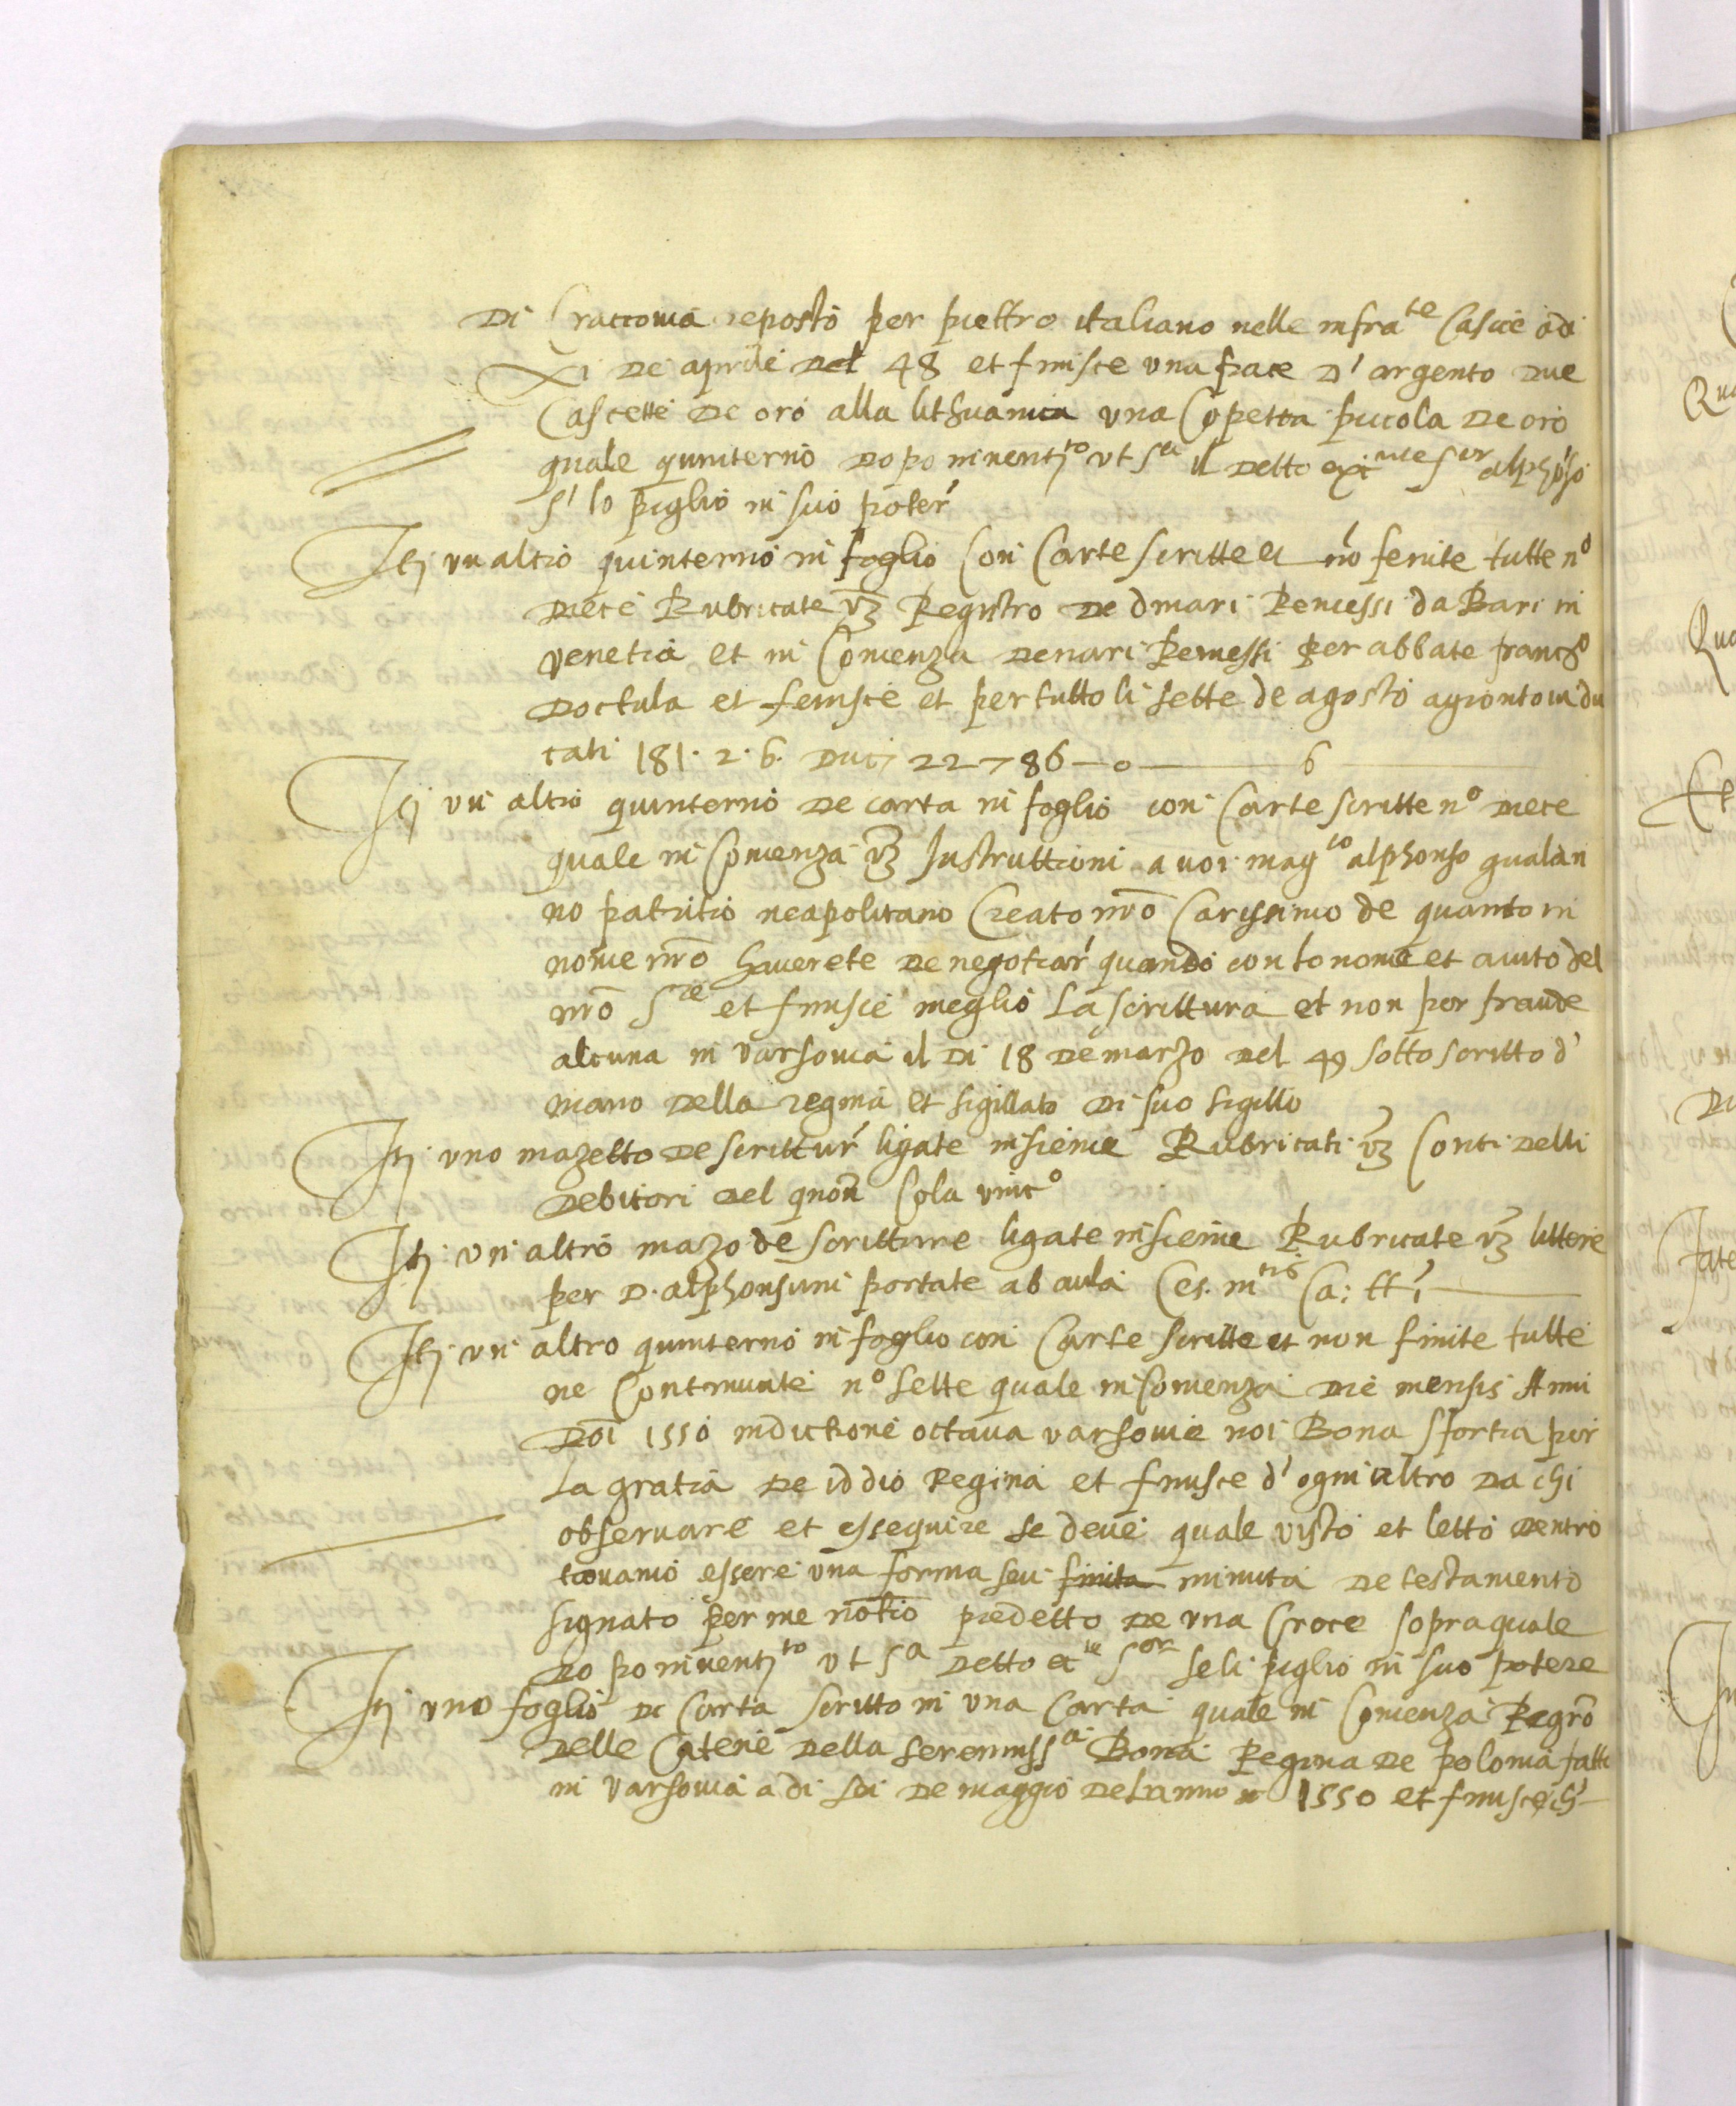 Di Craccovia reposto per piettro italiano nelle infra^te Cascie adi
Xi De aprile Del 48 et finisce una frace D' argento Due
Cascette De oro alla lithuanica una Copetta piccola De oro
quale quinterno Dopo inventj^to ut s^a il Detto ex^nte s^or alphoso
s' lo piglio in suo poter'
Itj un altro quinterno in foglio Con Carte scritte et nō fenite tutte n^o
Diece Rubricate vz Registro De dinari Remessi da Bari in
venetia et in Comenza Denari Remessi per abbate franc^o
Doctula et fenisce et per tutto li sette de agosto agionto in du
cati 181. 2. 6. Ducj 22786 — 0 — 6
Itj un altro quinterno De carta in foglio con Carte scritte n^o Diece
quale in Comenza vz Instruttioni a voi mag^co alphonso gualan
no patritio neapolitano Creato nrō Carissimo de quanto in
nome nrō haverete De negotiar' quando con lo nome et aiuto del
nrō S^re et finisce meglio La scrittura et non per fraude
alcuna in varsovia il Di 18 De marzo Del 49 sotto scritto d'
mano Della regina et sigillato Di suo sigillo
Itj uno mazetto De scrittur' ligate insieme Rubricati vz Conti Delli
Debitori Del qnōn Cola vinc^o
Itj un altro mazo de scritture ligate insieme Rubricate vz littere
per D. alphonsum portate ab aula Ces. m^tis Ca: tt'
Itj un altro quinterno in foglio con Carte scritte et non finite tutte
ne Continuate n^o sette quale in Comenza Die mensis Anni
Dōi 1550 indictione octava varsovie noi Bona Sfortia per
La gratia De iddio Regina et finisce d' ogni altro Da chi
observare et essequire se deve quale visto et letto Dentro
trovamo essere una forma seu finita minuta De testamento
signato per me notio predetto De una Croce sopra quale
Do po inventj^to ut s^a Detto ex^te s^or se li piglio in suo potere
Itj uno foglio De Carta scritto in una Carta quale in Comenza Regrō
Delle Catene Della serenniss^a Bona Regina De polonia fatte
in varsovia a di sei De maggio Del anno 1550 et finisce ch'